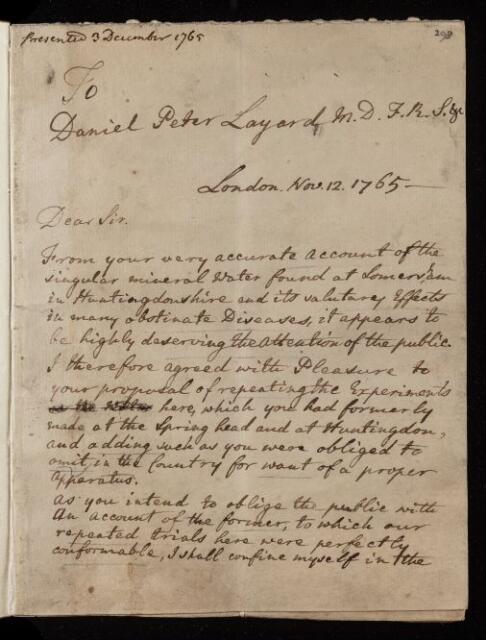 Presented 3 December 1765
To
Daniel Peter Layard M.D. F.R.S. &c
London. Nov. 12. 1765
Dear Sir.
From your very accurate account of the
singular mineral Water found at Somersham
in Huntingdonshire and its salutary Effects
in many obstinate Diseases, it appears to
be highly deserving the attention of the public.
I therefore agreed with Pleasure to
your proposal of repeating the Experiments
here, which you had formerly
made at the Spring head and at Huntingdon,
and adding such as you were obliged to
omit, in the Country for want of a proper
Apparatus.
As you intend to oblige the public with
An account of the former, to which our
repeated trials here were perfectly
conformable, I shall confine myself in the